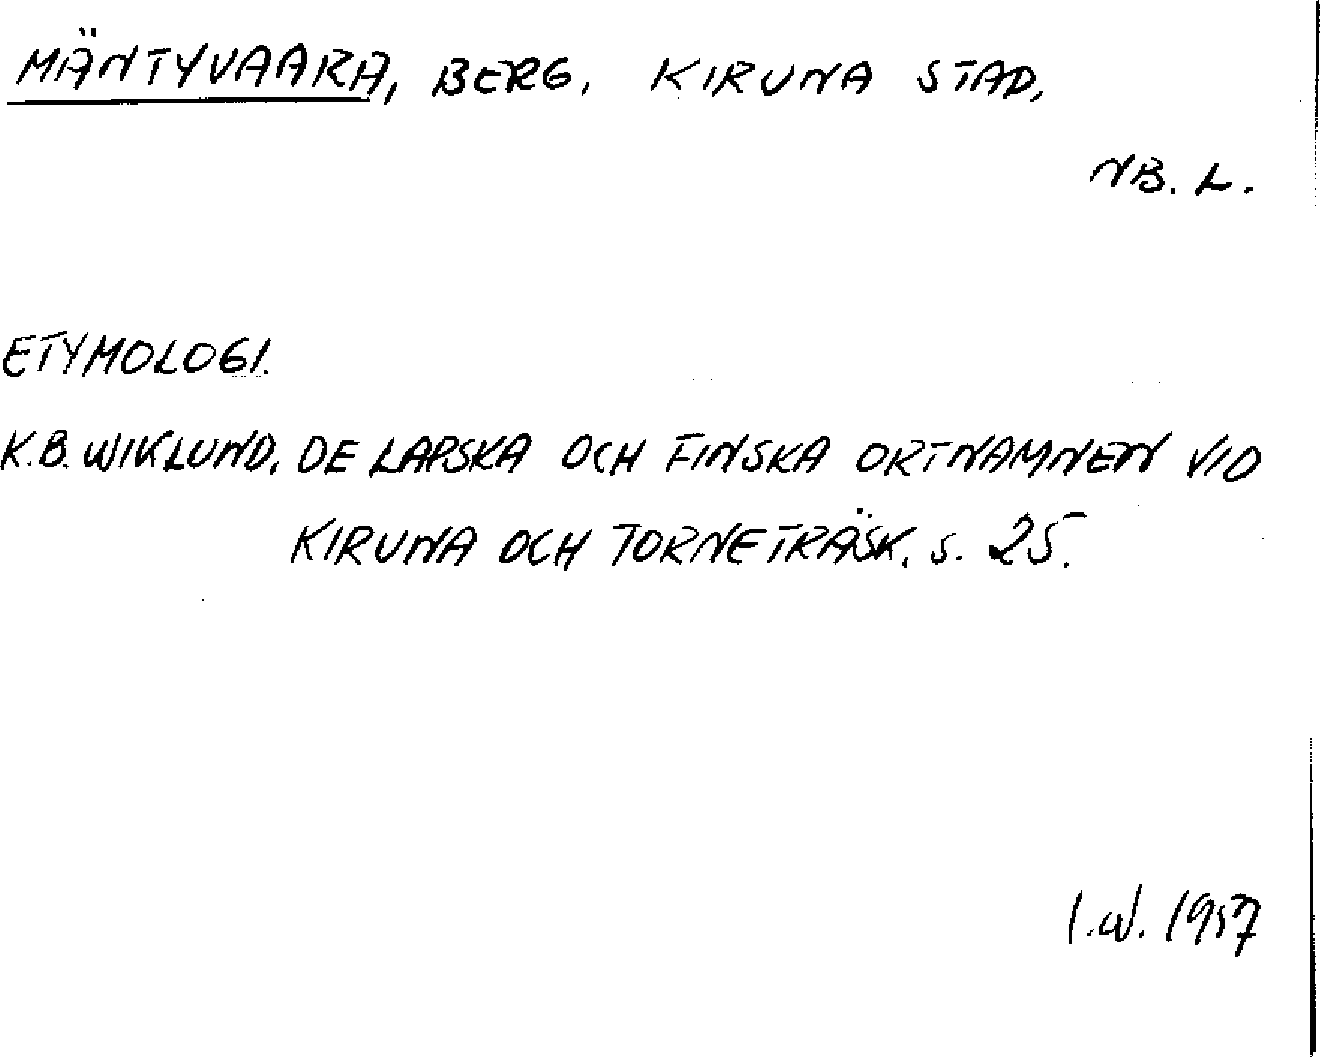 MÄNTYVAARA, BERG, KIRUNA STAD,
NB. L.
ETYMOLOGI.
K.B. WIKLUND, DE LAPSKA OCH FINSKA ORTNAMNEN VID
KIRUNA OCH TORNETRÄSK. S. 25.
I.W. 1957